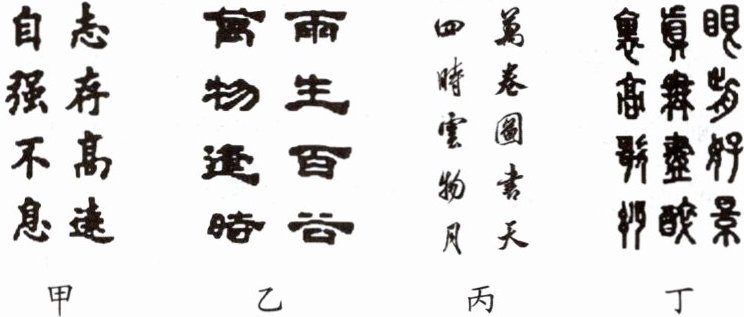 志存高遠
自强不息
雨生百谷
萬物逢時
萬卷圖書天
四時雲物月
眼前好景
真無盡醉
裏高歌
甲 乙 丙 丁